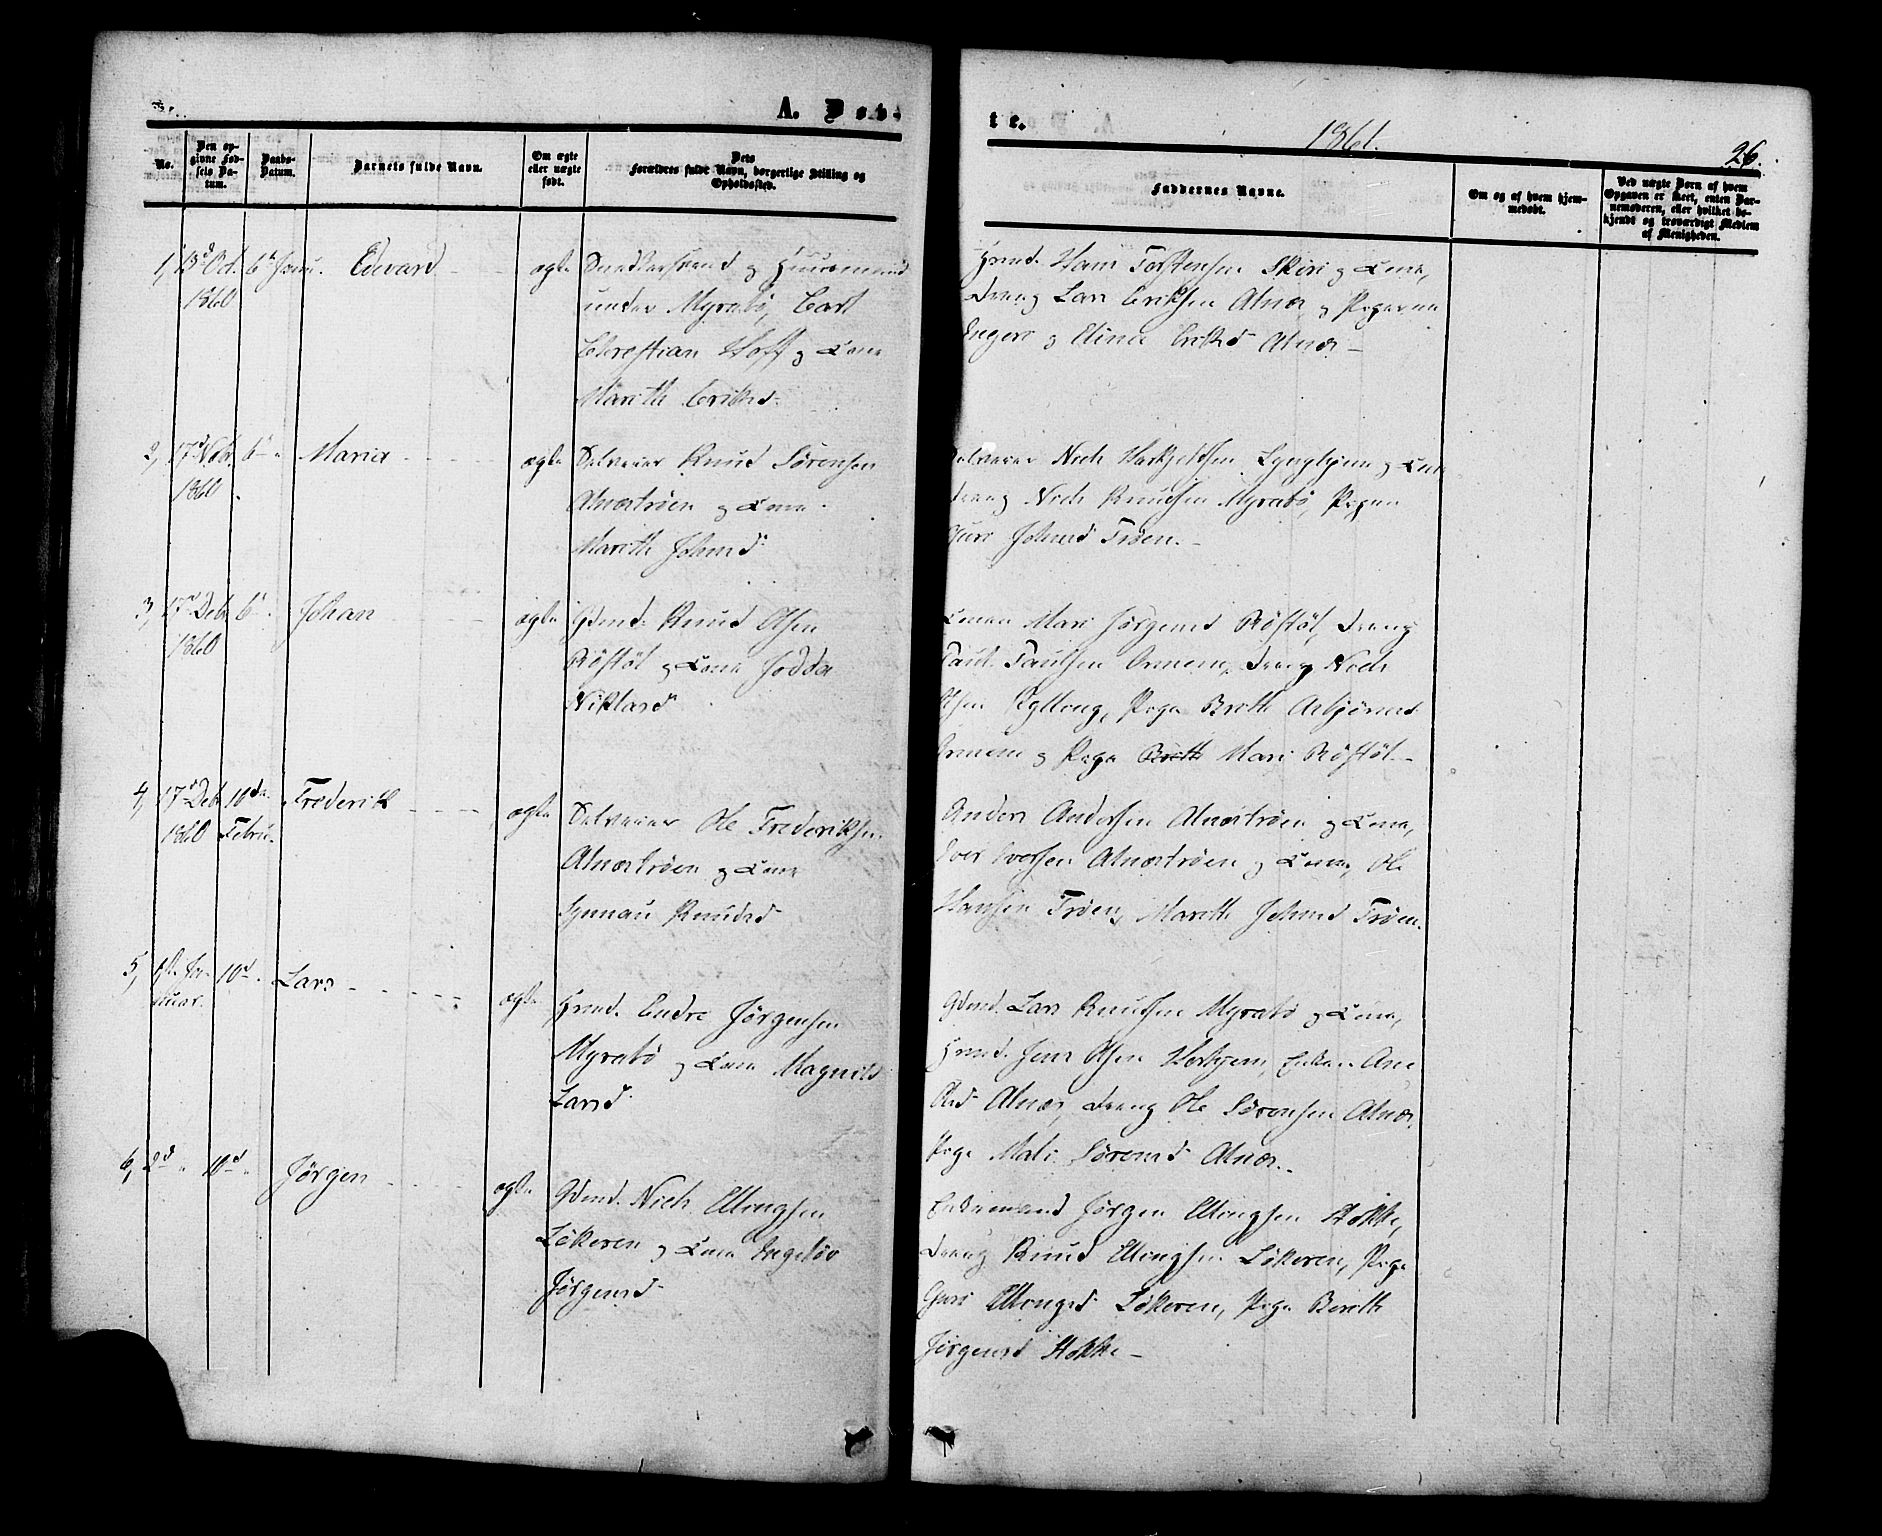 A. Døb-
te.
1861.
26.
No.
Den op-
givne Fød-
sels Da-
tum.
Daabs-
Datum.
Barnets fulde Navn.
Om ægte
eller uægte
født.
Dets
Forældres fulde Navn, borgerlige Stilling og
Opholdssted.
Faddernes Navne.
Om og af hvem hjem-
medøbt.
Ved uægte Børn af hvem
Opgaven er skeet, enten Bar-
nemoderen, eller hvilket be-
kjendt og troværdigt Medlem
af Menigheden.
1, 13d Oct. 6te Janu. Edevard ægte og Huusmand
1860 under Myrabø, Carl
Christian Hoff og Kone
Marith Eriksd.
Hmd. Hans Torstensen og Kone,
Dreng Lars Eriksen Alnæs og Pigerne
Ingeri og Eline Eriksd Alnæs
2, 17d Novbr. 6te Maria ægte Selveier Knud Sørensen
1860 Alnæstrøen og Kone
Marith Johnsd
Selveier Niels og Kone
Dreng Niels Knudsen Myrabø, Pigen
Guri Johnsd Trøen.
3, 17d Debr 6te Johan ægte Gdmd. Knud Olsen
1860 Røstøl og Kone Jodda
Niklasd
Konen Mari Jørgensd Røstøl, Dreng
Paul Paulsen Ormem, Dreng Niels
Olsen Pige Brith Asbjørnsd
Ormem og Pige Berith Mari Røstøl
4, 17d Debr 10de Frederik ægte Selveier Ole Frederiksen
1860 Febru. Alnæstrøen og Kone
Synnau Knudsd
Anders Andersen Alnæstrøen og Kone,
Iver Iversen Alnæstrøen og Kone, Ole
Hansen Trøen, Marith Johnsd Trøen.
5, 1ste Ja- 10d Lars ægte Hmd. Endre Jørgensen
nuar. Myrabø og Kone Magnild
Larsd
Gdmd. Lars Knudsen Myrabø og Kone,
Hmd. Jens Olsen Enken Ane
Olsd Alnæs, Dreng Ole Sørensen Alnæs,
Pige Mali Sørensd Alnæs.
6, 2d 10d Jørgen ægte Gdmd. Niels Ellingsen
Løkeren og Kone Ingeløv
Jørgensd
Enkemand Jørgen Ellingsen Stokke,
Dreng Knud Ellingsen Løkeren, Pige
Guri Ellingsd Løkeren, Pige Berith
Jørgensd Stokke